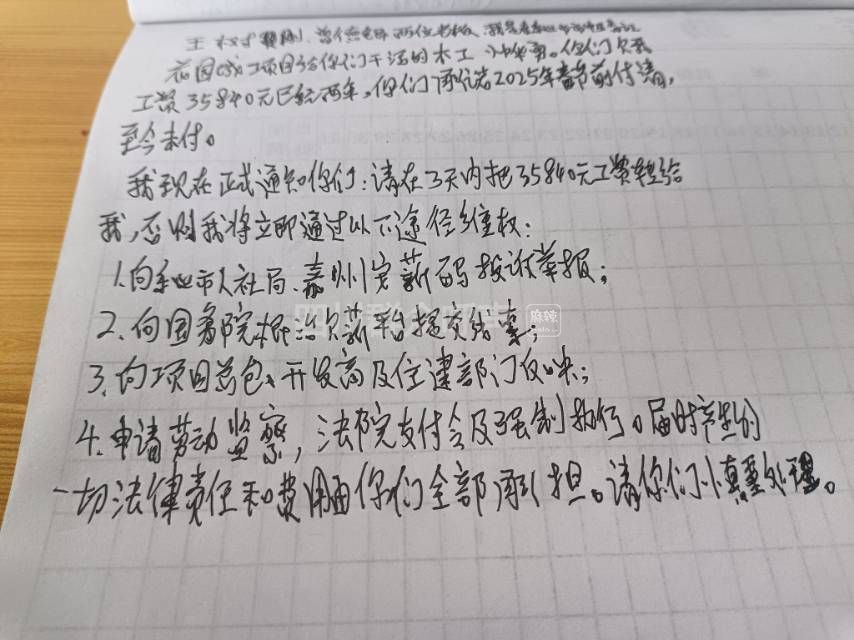 两位老板，我是在
花园城工项目给你们干活的木工 你们欠我
工资35840元已经两年，你们承诺2025年春节前付清，
至今未付。
我现在正式通知你们：请在3天内把35840元工资转给
我，否则我将立即通过以下途径维权：
1.向乐山市人社局、嘉州安薪码投诉举报；
2.向国务院根治欠薪平台提交线索；
3.向项目总包、开发商及住建部门反映；
4.申请劳动监察，法院支付令及强制执行。届时产生的
一切法律责任和费用由你们全部承担。请你们慎重处理。
麻辣